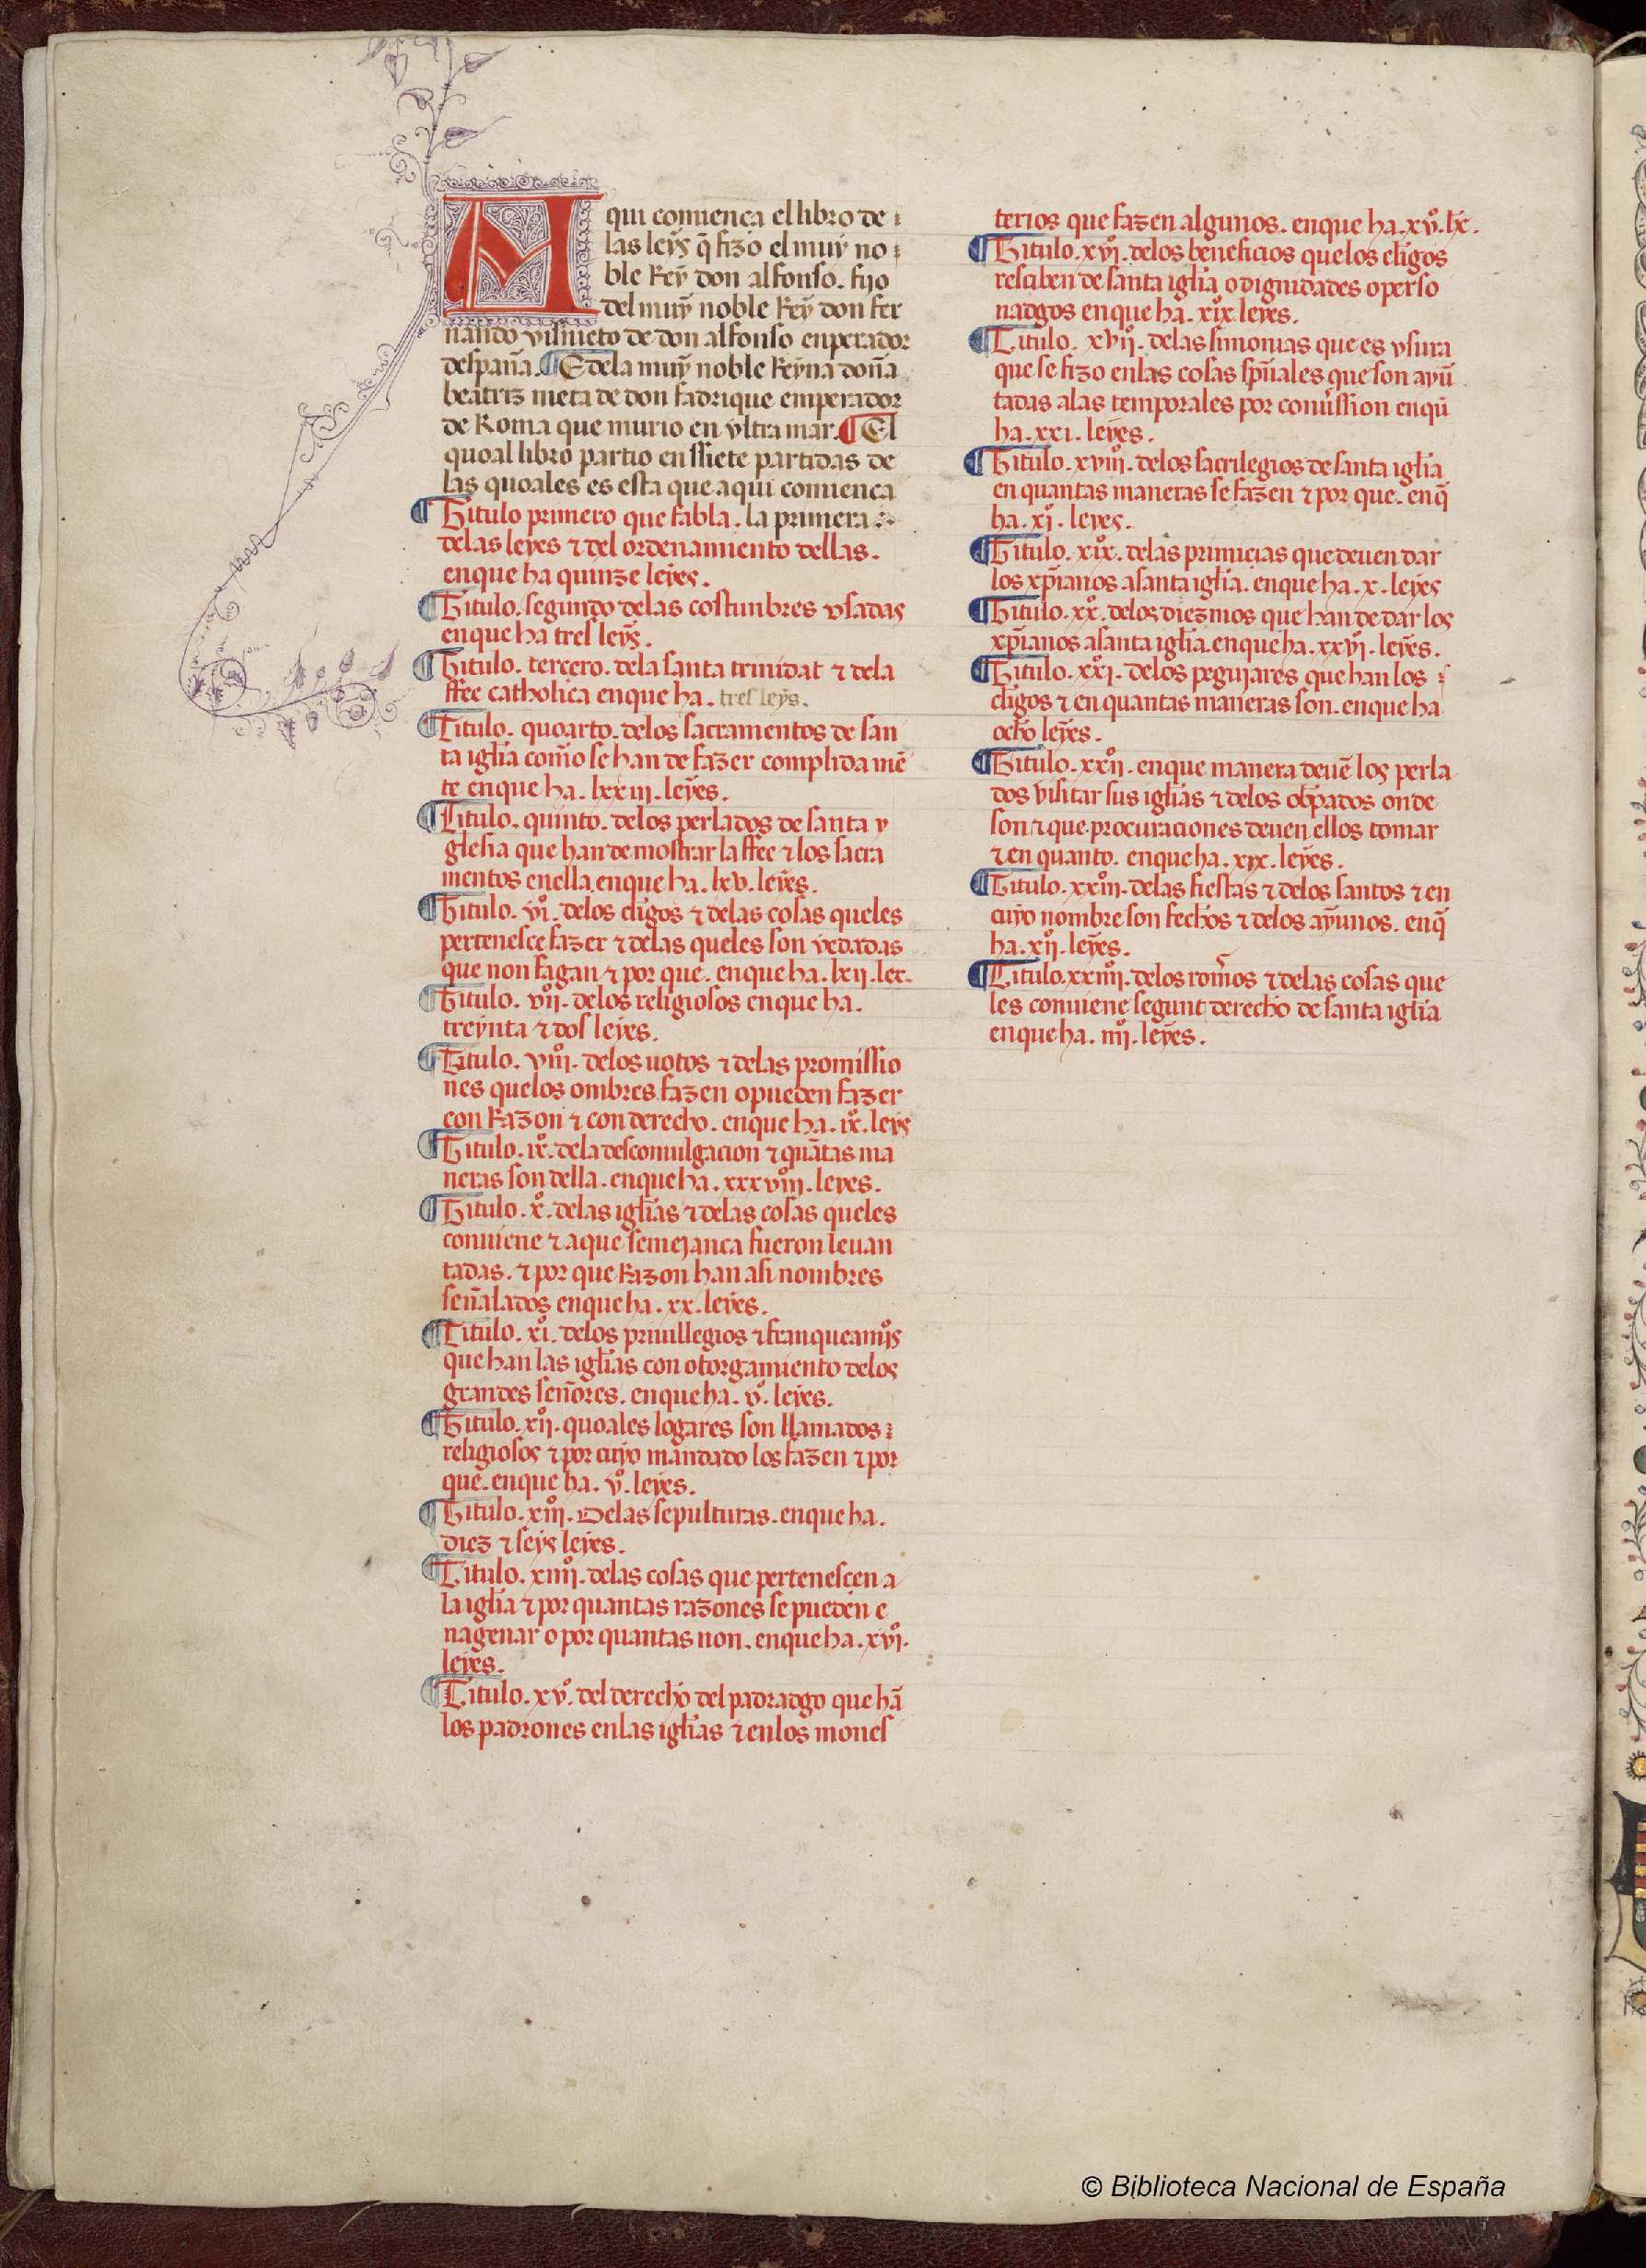 A qui comiença el libro de
las leyes q̃ fizo el muy no
ble Rey don alfonso. fijo
del muy noble Rey don fer
nando visnieto de don alfonso enperador
despaña. ¶ E dela muy noble Reyna doña
beatriz nieta de don fadrique emperador
de Roma que murio en vltra mar. ¶ El
quoal libro partio en ssiete partidas de
las quoales es esta que aqui comiença
¶ Titulo primero que fabla. la primera
delas leyes ⁊ del ordenamiento dellas.
enque ha quinze leyes.
¶ Titulo. segundo delas costunbres vsadas
enque ha tres leyes.
¶ Titulo. tercero. dela santa trinidat ⁊ dela
ffee catholica enque ha. tres leyes.
¶ Titulo. quoarto. delos sacramentos de san
ta igl̃ia com̃o se han de fazer complida mẽ
te enque ha. lxxiij. leyes.
¶ Titulo. quinto. delos perlados de santa y
glesia que han de mostrar la ffee ⁊ los sacra
mentos enella enque ha. lxv. leyes.
¶ Titulo. vi̊. delos cl̃igos ⁊ delas cosas queles
pertenesce fazer ⁊ delas queles son vedadas
que non fagan ⁊ por que. enque ha. lxij. lex.
¶ Titulo. vij̊. delos religiosos enque ha.
treynta ⁊ dos leyes.
¶ Titulo. viij̊. delos uotos ⁊ delas promissio
nes quelos ombres fazen o pueden fazer
con Razon ⁊ con derecho. enque ha. ix̊. leys
¶ Titulo. ix̊. dela descomulgacion ⁊ quãtas ma
neras son della. enque ha. xxxviij̊. leyes.
¶ Titulo. x̊. delas igl̃ias ⁊ delas cosas queles
conuiene ⁊ a que semejança fueron leuan
tadas. ⁊ por que Razon han asi nombres
señalados enque ha. xx. leyes.
¶ Titulo. xi̊. delos priuillegios ⁊ franqueamj̊s
que han las igl̃ias con otorgamiento delos
grandes señores. enque ha. v̊. leyes.
¶ Titulo. xij̊. quoales logares son llamados
religiosos ⁊ por cuyo mandado los fazen ⁊ por
que. enque ha. v̊. leyes.
¶ Titulo. xiij̊. Delas sepulturas. enque ha.
diez ⁊ seys leyes.
¶ Titulo. xiiij̊. delas cosas que pertenescen a
la igl̃ia ⁊ por quantas razones se pueden e
nagenar o por quantas non. enque ha. xvj̊.
leyes.
¶ Titulo. xv̊. del derecho del padradgo que hã
los padrones enlas igl̃ias ⁊ enlos mones
terios que fazen algunos. enque ha. xv̊. lx̃.
¶ Titulo. xvj̊. delos beneficios quelos cl̃igos
resciben de santa igl̃ia o dignidades o perso
nadgos enque ha. xix̊. leyes.
¶ Titulo. xvij̊. delas simonias que es vsura
que se fizo enlas cosas sp̃uales que son ayũ
tadas alas temporales por comission enqũ
ha. xxi. leyes.
¶ Titulo. xviij̊. delos sacrilegios de santa igl̃ia
en quantas maneras se fazen ⁊ por que. enq̃
ha. xj̊. leyes.
¶ Titulo. xix̊. delas primicias que deuen dar
los xp̃ianos a santa igl̃ia. enque ha. x. leyes
¶ Titulo. xx̊. delos diezmos que han de dar los
xp̃ianos a santa igl̃ia. enque ha. xxvj̊. leyes.
¶ Titulo. xxi̊. delos pegujares que han los
cl̃igos ⁊ en quantas maneras son. enque ha
ocho leyes.
¶ Titulo. xxij̊. enque manera deuẽ los perla
dos visitar sus igl̃ias ⁊ delos ob̃pados onde
son ⁊ que procuraciones deuen ellos tomar
⁊ en quanto. enque ha. xix. leyes.
¶ Titulo. xxiij̊. delas fiestas ⁊ delos santos ⁊ en
cuyo nombre son fechos ⁊ delos ayunos. enq̃
ha. xij̊. leyes.
¶ Titulo. xxiiij̊. delos rom̃os ⁊ delas cosas que
les conuiene segunt derecho de santa igl̃ia
enque ha. iiij̊. leyes.
© Biblioteca Nacional de España